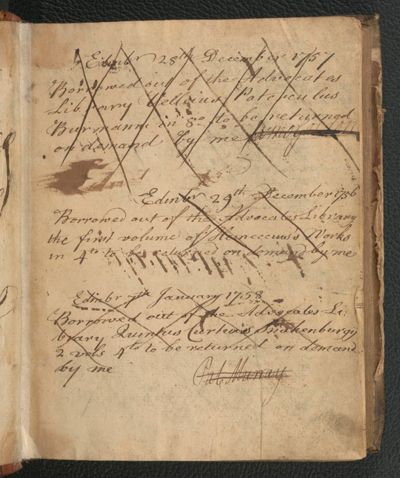 Edinbr 28th December 1757
Borrowed out of the Advocates
Library Velleius Paterculus
Burmanni in 8vo to be returned
on demand by me
Edinbr 29th December 1756
Borrowed out of the Advocates Library
the first volume of Heineccius's Works
in 4to to be returned on demand by me
Edinbr 7th January 1758
Borrowed out of the Advocates Li-
brary Quintus Curtius Snakenburgij
2 vols 4to to be returned on demand
by me
Pat: Murray